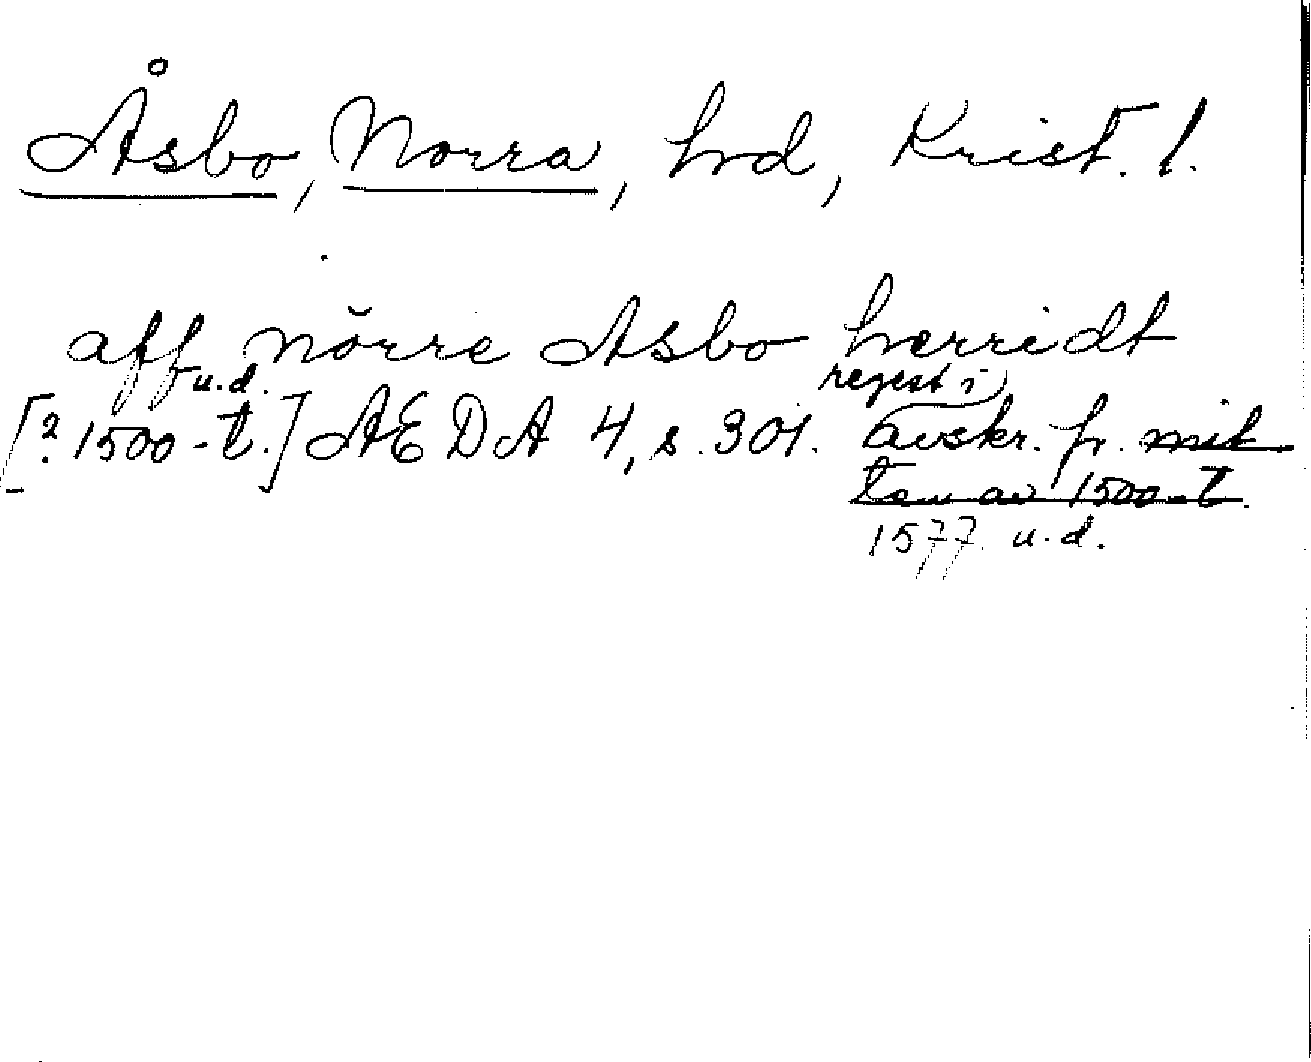 Åsbo, Norra, hd, Krist. l.
aff nörre Asbo herridt
u.d. regest i
[? 1500-t.] AEDA 4, s. 301. avskr. fr. mit
ten av 1500-t.
1577 u.d.